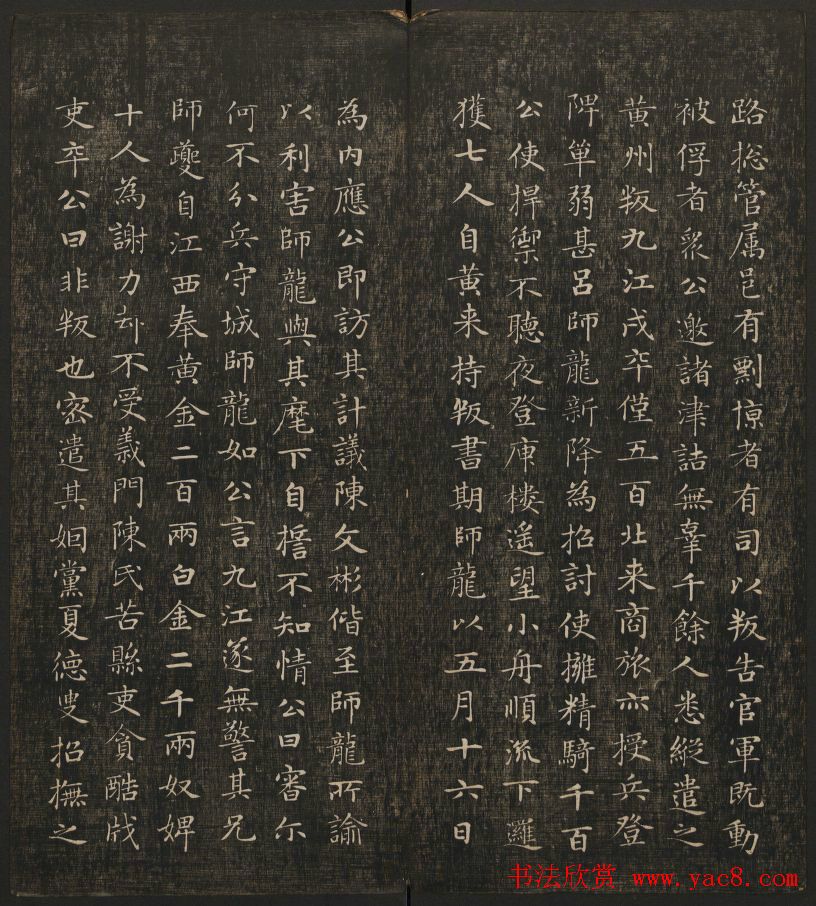 路捴管属邑有剽悢者有司以叛告官軍既動
被俘者眾公邀諸津詰無辜千餘人悉縱遣之
黄州叛九江戍卒僅五百北来商旅亦授兵登
陴單弱甚呂師龍新降為招討使擁精騎千百
公使捍禦不聽夜登庾楼遥望小舟順流下邏
獲七人自黄来持叛書期師龍以五月十六日
為内應公即訪其計議陳文彬偕至師龍所諭
以利害師龍與其麾下自誓不知情公曰審尓
何不分兵守城師龍如公言九江遂無警其兄
師夔自江西奉黄金二百兩白金二千兩奴婢
十人為謝力却不受義門陳氏苦縣吏貪酷戕
吏卒公曰非叛也密遣其姻黨夏德叟招撫之
书法欣赏 www.yac8.com